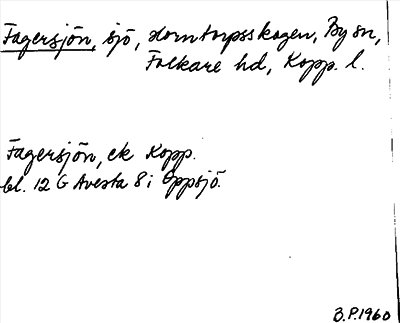 Fagersjön, sjö, Horntorpsskogen, By sn,
Folkare hd, Kopp. l.
Fagersjön, ek Kopp.
bl. 12 G Avesta 8 i Oppsjö.
B.P. 1960